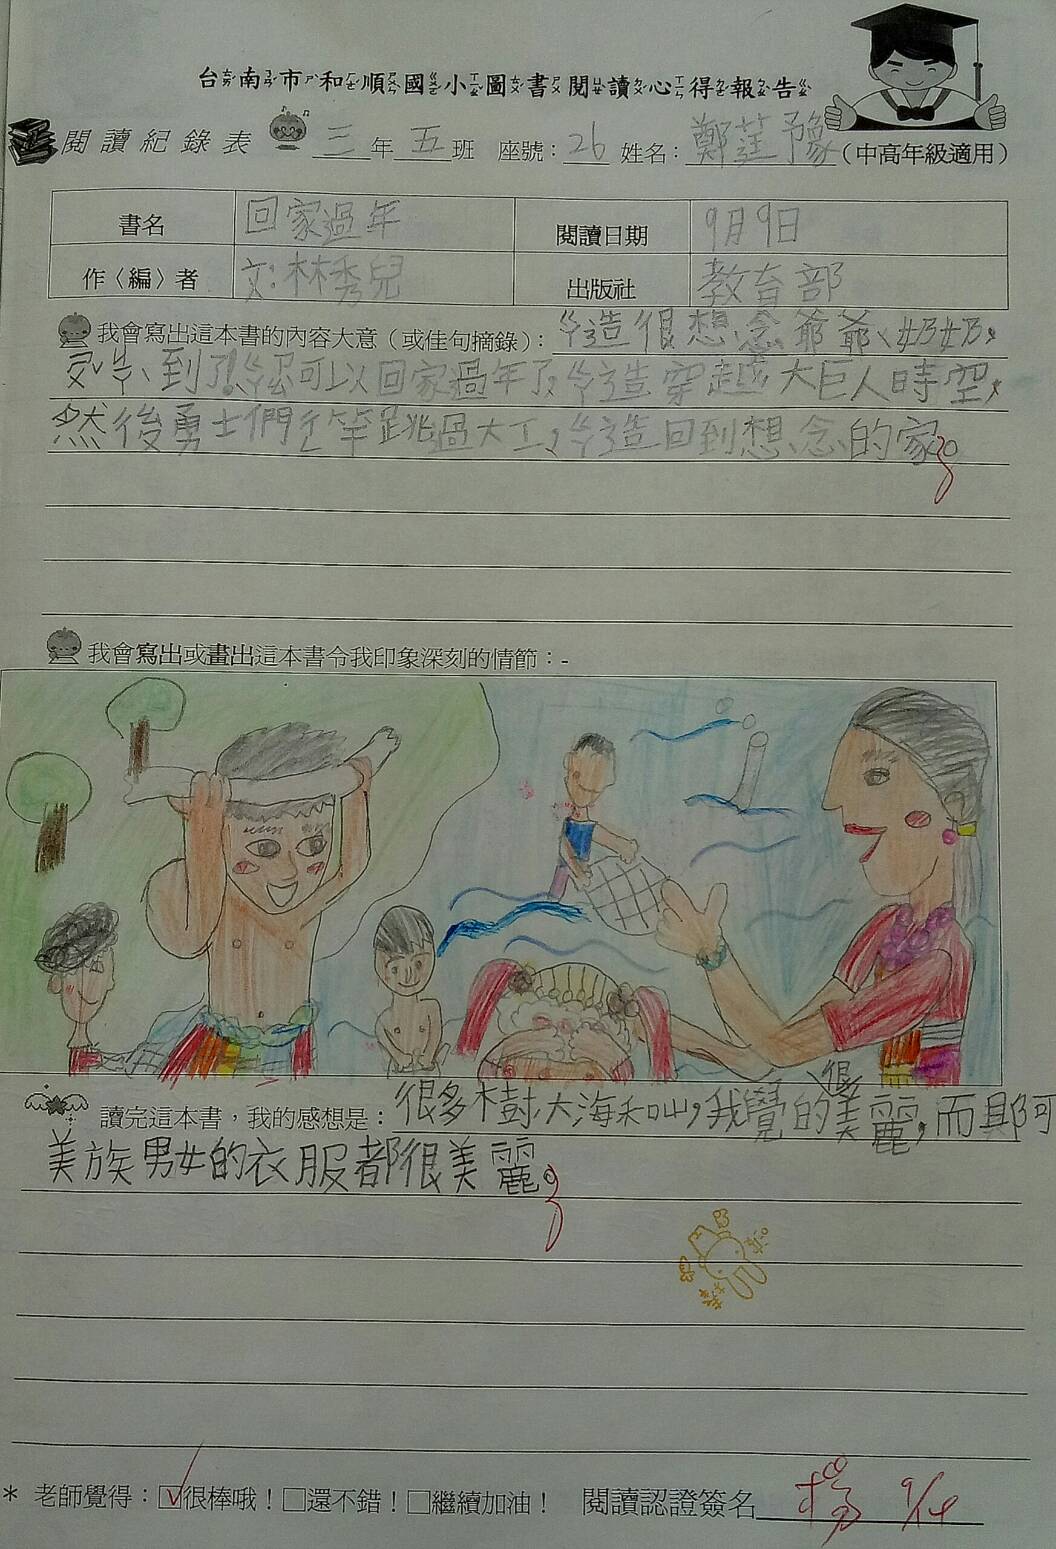 台南市和順國小圖書閱讀心得報告
閱讀紀錄表 三年五班 座號：26 姓名：鄭莛豫（中高年級適用）
書名 回家過年 閱讀日期 9月9日
作〈編〉者 文：林秀兒 出版社 教育部
我會寫出這本書的內容大意（或佳句摘錄）： 造很想念爺爺、奶奶，
到了！可以回家過年了，造穿越大巨人時空，
然後勇士們 竿跳過大工，造回到想念的家。
我會寫出或畫出這本書令我印象深刻的情節：-
讀完這本書，我的感想是： 很多樹大海和山，我覺的很美麗，而且阿
美族男女的衣服都很美麗。
＊ 老師覺得：☑很棒哦！□還不錯！□繼續加油！ 閱讀認證簽名 楊 9/14